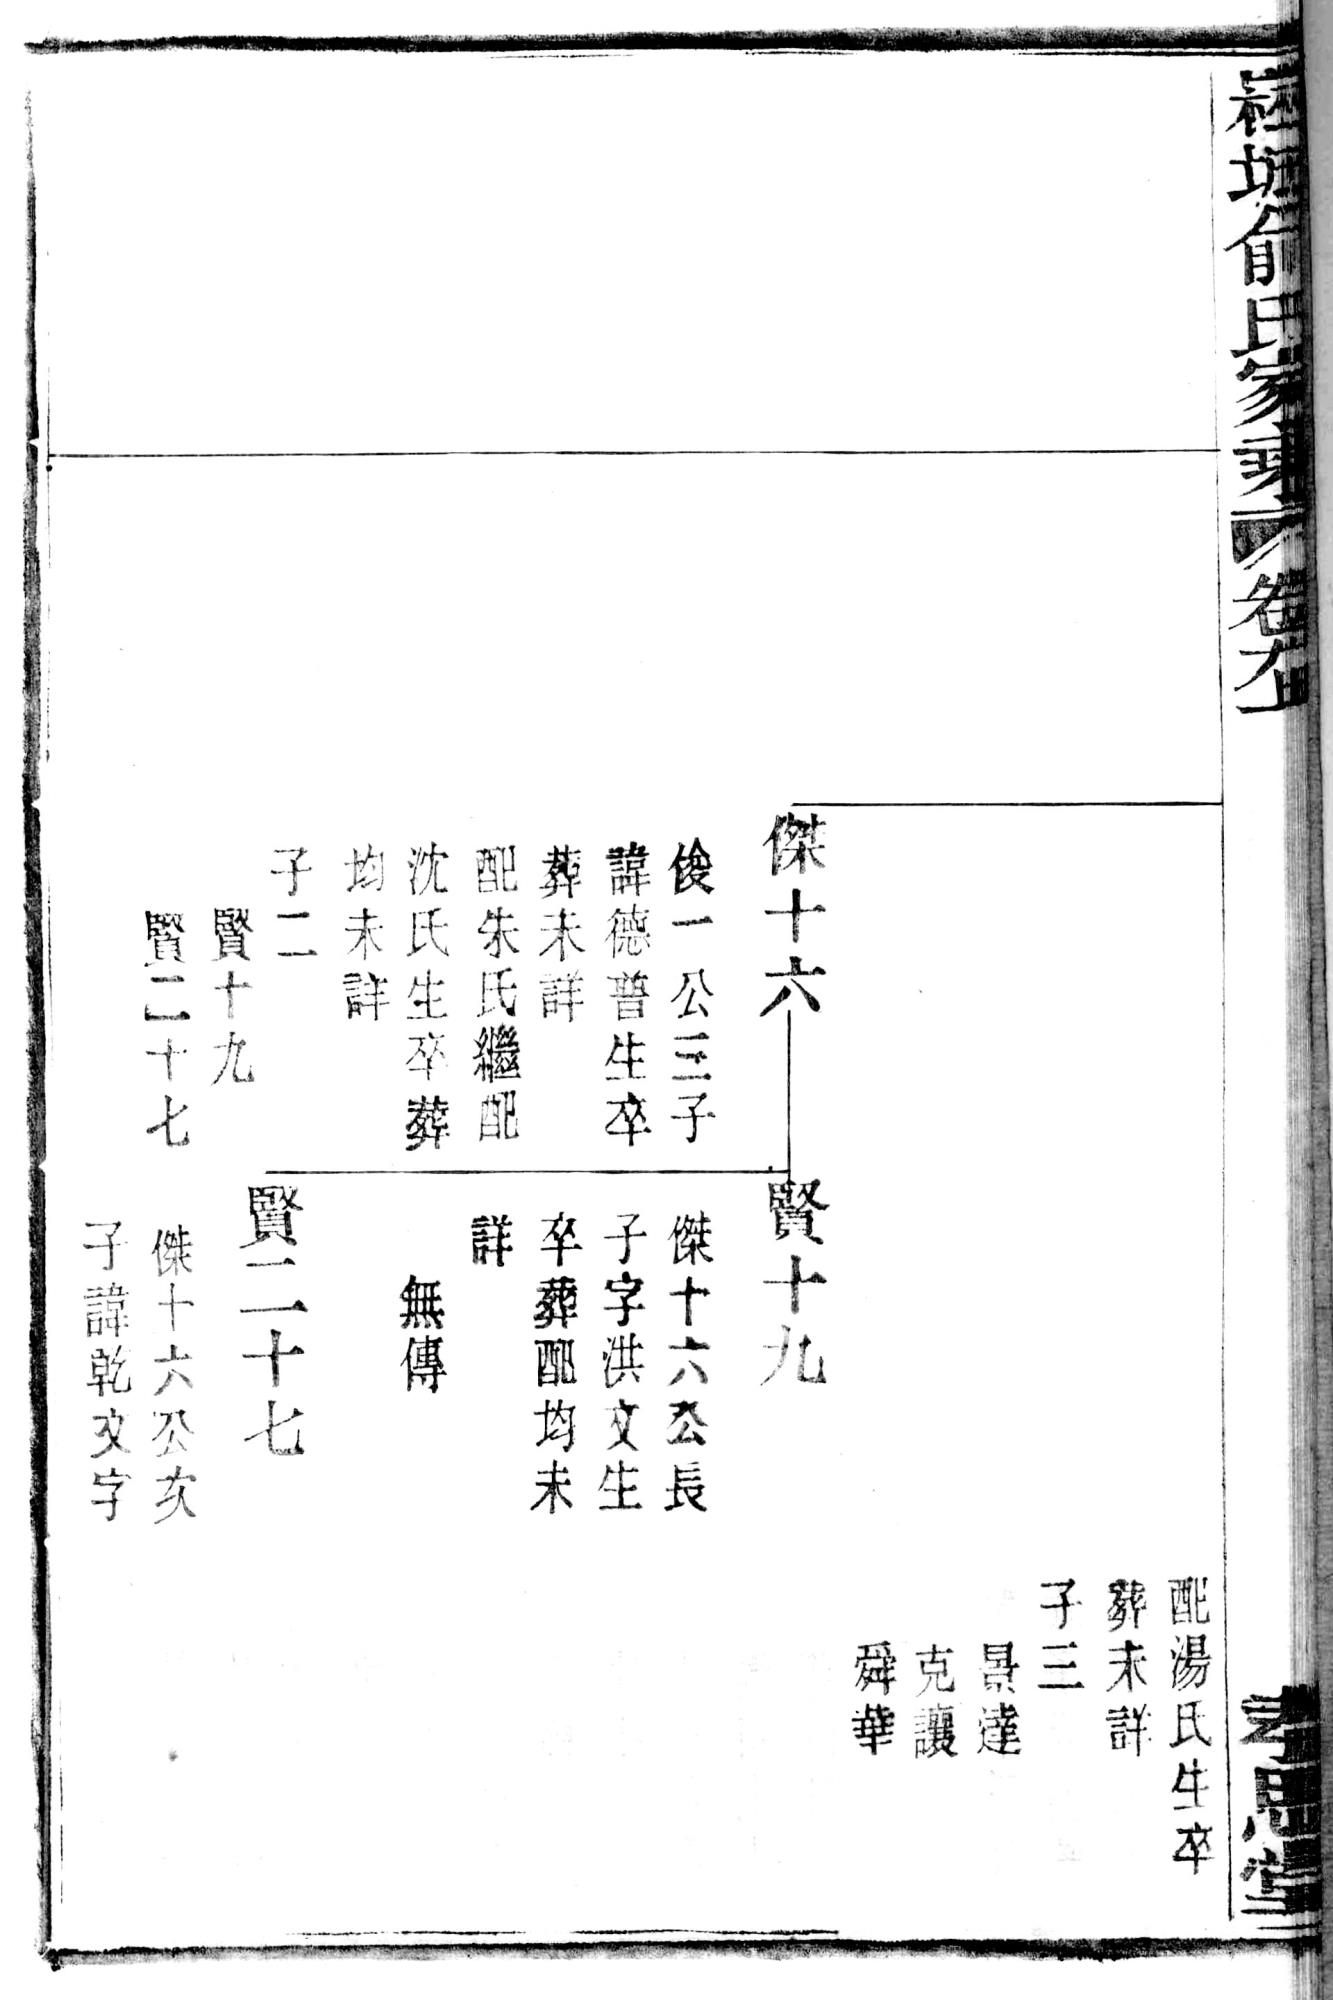 塘俞氏家乘 卷
孝思堂
配湯氏生卒
葬未詳
子三
景達
克讓
舜華
傑十六
俊一公三子
諱德普生卒
葬未詳
配朱氏繼配
沈氏生卒葬
均未詳
子二
賢十九
賢二十七
賢十九
傑十六公長
子字洪文生
卒葬配均未
詳
無傳
賢二十七
傑十六公次
子諱乾文字